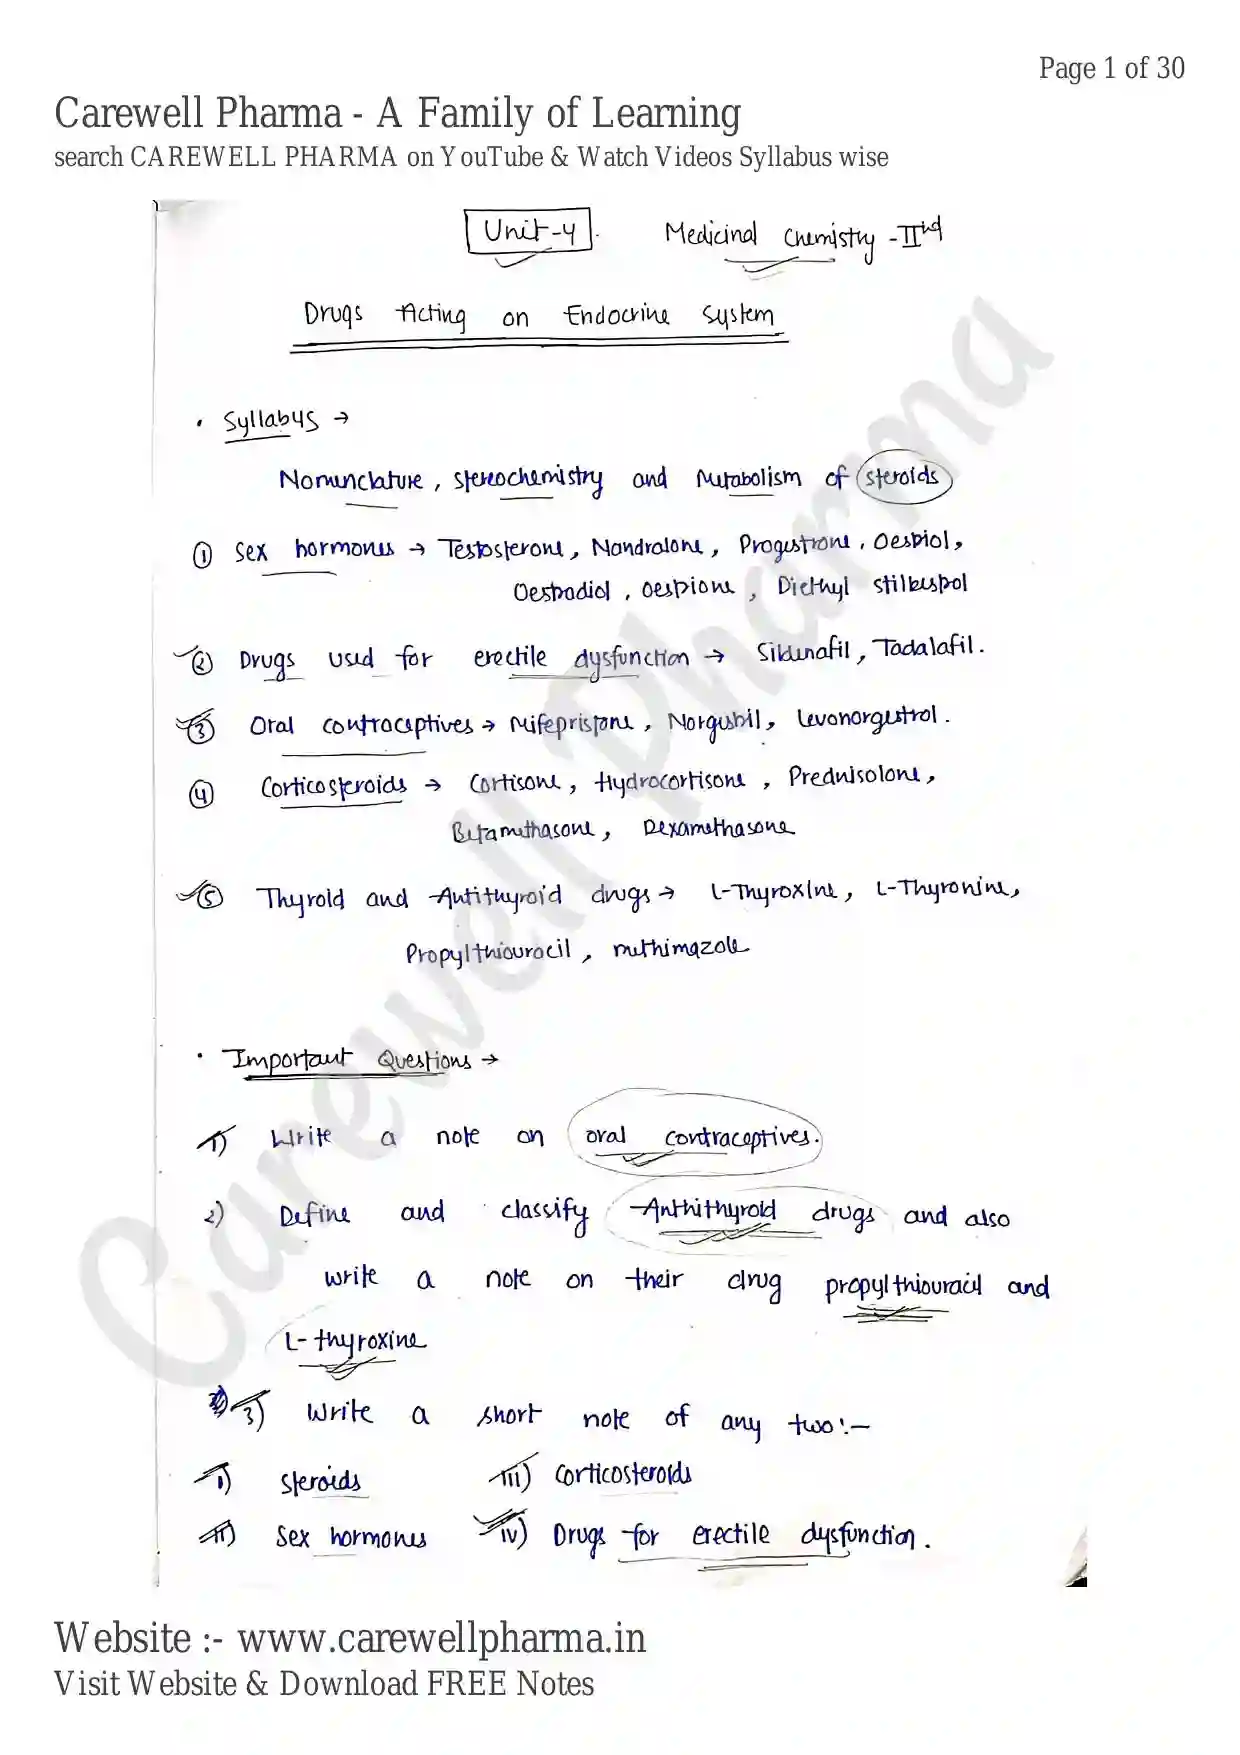 Page 1 of 30
Carewell Pharma - A Family of Learning
search CAREWELL PHARMA on YouTube & Watch Videos Syllabus wise
Unit-4. Medicinal Chemistry -IInd
Drugs Acting on Endocrine System
• Syllabus →
Nomenclature, stereochemistry and metabolism of steroids
① Sex hormones → Testosterone, Nandralone, Progestrone, Oestriol,
Oestradiol, oestrione, Diethyl stilbestrol
② Drugs used for erectile dysfunction → Sildenafil, Tadalafil.
③ Oral contraceptives → Mifepristone, Norgestril, Levonorgestrol.
④ Corticosteroids → Cortisone, Hydrocortisone, Prednisolone,
Betamethasone, Dexamethasone
⑤ Thyroid and Antithyroid drugs → L-Thyroxine, L-Thyronine,
Propylthiouracil, methimazole
• Important Questions →
1) Write a note on oral contraceptives.
2) Define and classify Anthithyroid drugs and also
write a note on their drug propylthiouracil and
L-thyroxine
3) Write a short note of any two:-
i) steroids iii) corticosteroids
ii) Sex hormones iv) Drugs for erectile dysfunction.
Carewell Pharma
Website :- www.carewellpharma.in
Visit Website & Download FREE Notes